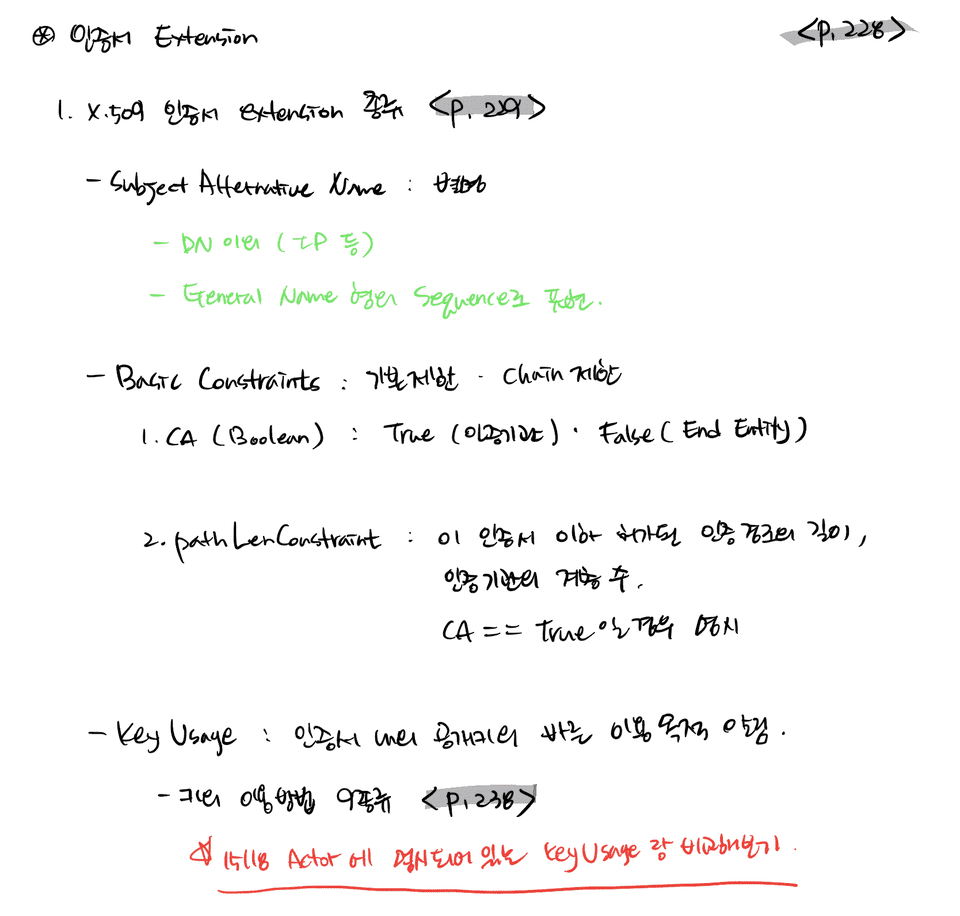 ⊛ 인증서 Extension <p.228>
1. X.509 인증서 extension 종류 <p.229>
- Subject Alternative Name : 별명
- DN 이외 (IP 등)
- General Name 형태 Sequence로 표현.
- Basic Constraints : 기본제한 · Chain 제한
1. CA (Boolean) : True (인증기관) · False ( End Entity )
2. pathLenConstraint : 이 인증서 이하 허가된 인증경로의 길이,
인증기관의 계층 수.
CA == True 일 경우 명시
- Key Usage : 인증서 내의 공개키의 바른 이용 목적 알림.
- 키의 이용방법 9종류 <p.238>
☆ 15118 Actor 에 명시되어 있는 KeyUsage 랑 비교해보기.